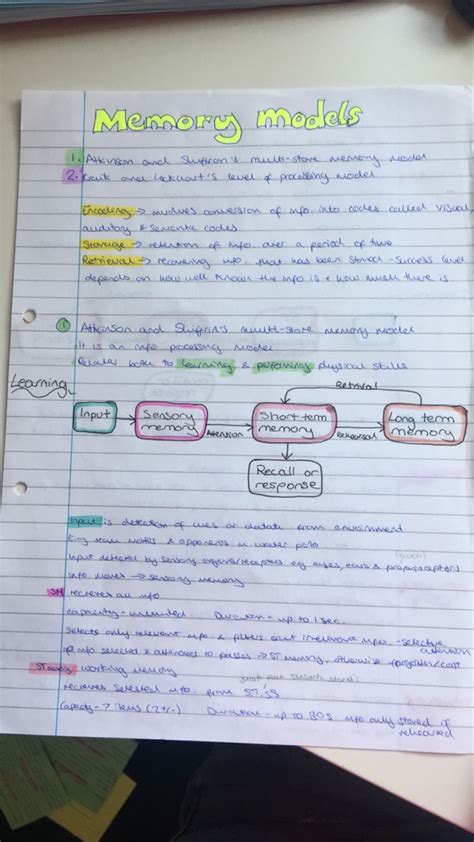 Memory models
1. Atkinson and Shiffrin's multi-store memory model
2. Craik and Lockhart's level of processing model
Encoding → involves conversion of info. into codes called visual,
auditory & semantic codes
Storage → retention of info. over a period of time
Retrieval → recovering info. that has been stored - success level
depends on how well known the info is + how much there is
① Atkinson and Shiffrin's multi-store memory model
It is an info processing model
Relates both to learning & performing physical skills
Learning
Retrival
Input
Sensory memory
Attention
Short term memory
Rehearsal
Long term memory
Recall or response
Input is detection of cues or data from environment
E.g team mates & opponents in water polo
Input detected by sensory organs/receptors e.g. eyes, ears & proprioceptors
info moves → sensory memory
SM recieves all info
capacity - unlimited Duration - up to 1 sec.
Selects only relevant info & filters out irrelevant info. - selective attention
info selected & attended to passes → ST memory, otherwise forgotten/lost
working memory
recieves selected info. from
Capacity → items (2+/-) Duration - up to info only stored if rehearsed